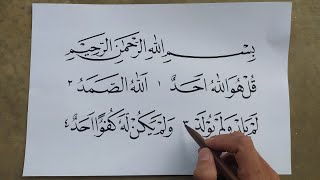 بِسْمِ اللهِ الرَّحْمٰنِ الرَّحِيْمِ
قُلْ هُوَ اللهُ اَحَدٌ ١ اَللهُ الصَّمَدُ ٢
لَمْ يَلِدْ وَلَمْ يُوْلَدْ ٣ وَلَمْ يَكُنْ لَهٗ كُفُوًا اَحَدٌ ٤